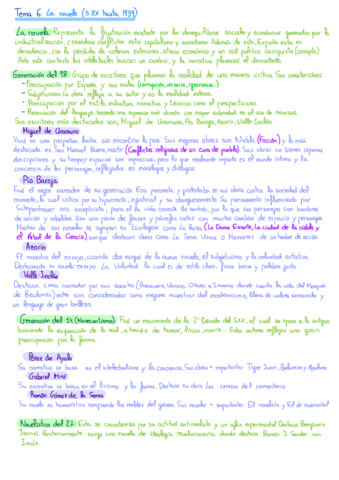 Tema 6: La novela (S.XX hasta 1939)
La novela: Representa la frustración existente por los desequilibrios sociales y económicos generados por la
industrialización, creándose conflictos entre capitalismo y socialismo. Además de esto, España está en
decadencia, con la pérdida de colonias exteriores, atraso económico y un sist político caciquista (corrupto)
Ante este contexto los intelectuales buscan un cambio, y la narrativa plasmará el descontento.
Generación del 98: Grupo de escritores que plasman la realidad de una manera crítica. Sus características:
- Preocupación por España y sus males (corrupción, miseria, ignorancia...)
- Subjetivismo: la obra refleja a su autor y no la realidad externa.
- Preocupación por el estilo, estructura narrativa y técnicas como el perspectivismo
- Renovación del lenguaje, buscando una expresión más directa con mayor sobriedad en el uso de recursos.
Sus escritores más destacados son, Miguel de Unamuno, Pío Baroja, Azorín, Valle-Inclán.
Miguel de Unamuno
Vivió en una perpetua lucha sin encontrar la paz. Sus mejores obras son Niebla (Ficción) y la más
destacada es San Manuel Bueno, mártir (Conflictos religiosos de un cura de pueblo). Sus obras no tienen apenas
descripciones y su tiempo y espacio son imprecisos, pero lo que realmente importa es el mundo íntimo y la
conciencia de los personajes, reflejados en monólogos y diálogos.
Pío Baroja
Fue el mejor narrador de su generación. Era pesimista y protestaba en sus obras contra la sociedad del
momento, la cual critica por su hipocresía, injusticia y su aburguesamiento. Su pensamiento influenciado por
Schopenhauer era escepticista, pues él la vida carecía de sentido, por lo que sus personajes son hombres
de acción y rebeldes. Son una unión de frases y párrafos cortos con muchos cambios de espacio y personajes
Muchas de sus novelas se agrupan en trilogías como La Raza (La Dama Errante, La ciudad de la niebla y
el Árbol de la Ciencia) aunque destacan obras como La Tierra Vasca o Memorias de un hombre de acción.
Azorín
El maestro del ensayo, usando dos rasgos de la nueva novela, el subjetivismo y la voluntad artística.
Destacando su novela-ensayo La Voluntad la cual es de estilo claro, frase breve y palabra justa.
Valle Inclán
Destaca como narrador por sus sonatas (Primavera, Verano, Otoño e Invierno donde cuenta la vida del Marqués
de Bradomín) estas son consideradas como mayores muestras del modernismo, llenas de valores sensoriales y
un lenguaje de gran belleza.
Generación del 14 (Novecentismo): Fue un movimiento de la 2ª Década del S.XX, el cual se opone a lo antiguo
buscando la superación de lo real, a través de humor, lírica, ironía... Estos autores reflejan una gran
preocupación por la forma.
Pérez de Ayala
Su narrativa se basa en el intelectualismo y la conciencia. Sus obras + importantes: Tigre Juan, Belarmino y Apolonio
Gabriel Miró
Su narrativa se basa en el lirismo y la forma. Destaca su obra Las cerezas del cementerio
Ramón Gómez de la Serna
Su novela es humorística rompiendo los moldes del género. Sus novelas + importante: El novelista y El dr inverosímil
Novelística del 27: Esta se caracteriza por su actitud antirrealista y un afán experimental. Destaca Benjamín
Jarnés. Posteriormente surge una novela de ideología revolucionaria, donde destaca Ramón J. Sender con
Imán.